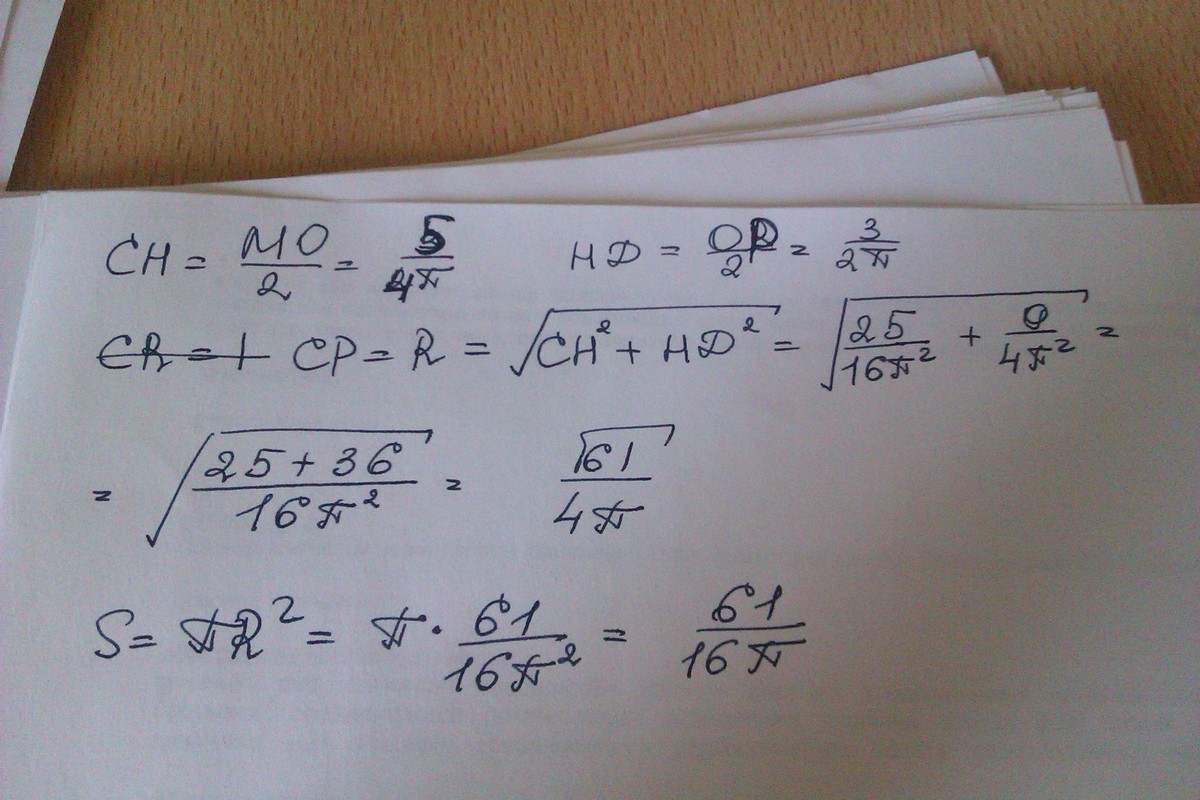 CH = MO/2 = 5/4π HD = OP/2 = 3/2π
CR = 1 CP = R = √(CH² + HD²) = √(25/16π² + 9/4π²) =
= √((25+36)/16π²) = √61/4π
S = πR² = π · 61/16π² = 61/16π